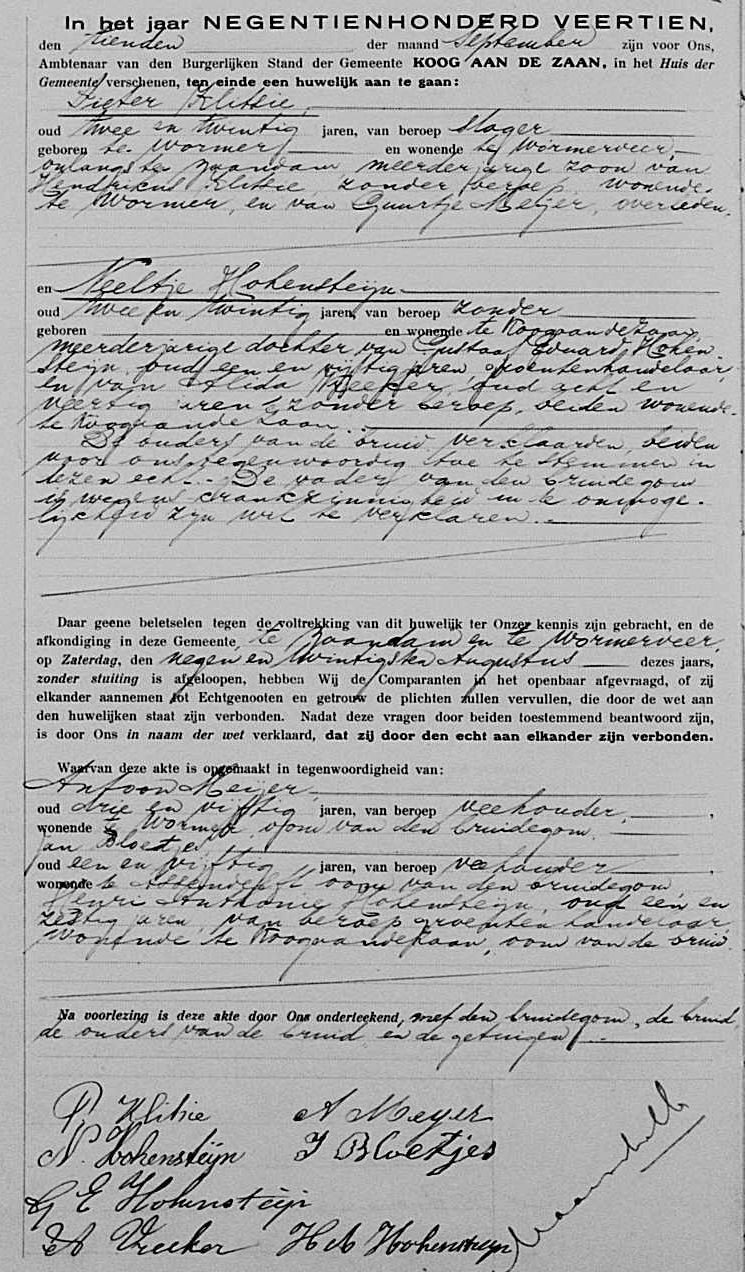 In het jaar NEGENTIENHONDERD VEERTIEN,
den tienden der maand September zijn voor Ons,
Ambtenaar van den Burgerlijken Stand der Gemeente KOOG AAN DE ZAAN, in het Huis der
Gemeente verschenen, ten einde een huwelijk aan te gaan:
Pieter Klitsie,
oud twee en twintig jaren, van beroep slager
geboren te Wormer en wonende te Wormerveer,
onlangs te Zaandam meerderjarige zoon van
Hendrikus Klitsie zonder beroep, wonende
te Wormer, en van Guurtje Meijer, overleden.
en Neeltje Hohensteijn
oud twee en twintig jaren, van beroep zonder
geboren en wonende te Koogaandezaan,
meerderjarige dochter van Gustaaf Eduard Hohen-
steijn, oud een en vijftig jaren, groentenhandelaar,
en van Alida Vreeker, oud acht en
veertig jaren, zonder beroep, beiden wonende
te Koogaandezaan.
De ouders van de bruid verklaarden, beiden
voor ons tegenwoordig toe te stemmen in
dezen echt. De vader van den bruidegom
is wegens krankzinnigheid in de onmoge-
lijkheid zijn wil te verklaren.
Daar geene beletselen tegen de voltrekking van dit huwelijk ter Onzer kennis zijn gebracht, en de
afkondiging in deze Gemeente, te Zaandam en te Wormerveer,
op Zaterdag, den negen en twintigsten Augustus dezes jaars,
zonder stuiting is afgeloopen, hebben Wij de Comparanten in het openbaar afgevraagd, of zij
elkander aannemen tot Echtgenooten en getrouw de plichten zullen vervullen, die door de wet aan
den huwelijken staat zijn verbonden. Nadat deze vragen door beiden toestemmend beantwoord zijn,
is door Ons in naam der wet verklaard, dat zij door den echt aan elkander zijn verbonden.
Waarvan deze akte is opgemaakt in tegenwoordigheid van:
Antoon Meijer,
oud drie en vijftig jaren, van beroep veehouder,
wonende te Wormer, oom van den bruidegom,
Jan Bloetjes
oud een en vijftig jaren, van beroep veehouder
wonende te Assendelft oom van den bruidegom,
Henri Anthonie Hohensteijn, oud een en
zestig jaren, van beroep groentenhandelaar,
wonende te Koogaandezaan, oom van de bruid.
Na voorlezing is deze akte door Ons onderteekend, met den bruidegom, de bruid,
de ouders van de bruid en de getuigen.
P. Klitsie A Meyer
N. Hohensteijn J Bloetjes
G E Hohensteijn
A Vreeker H A Hohensteijn